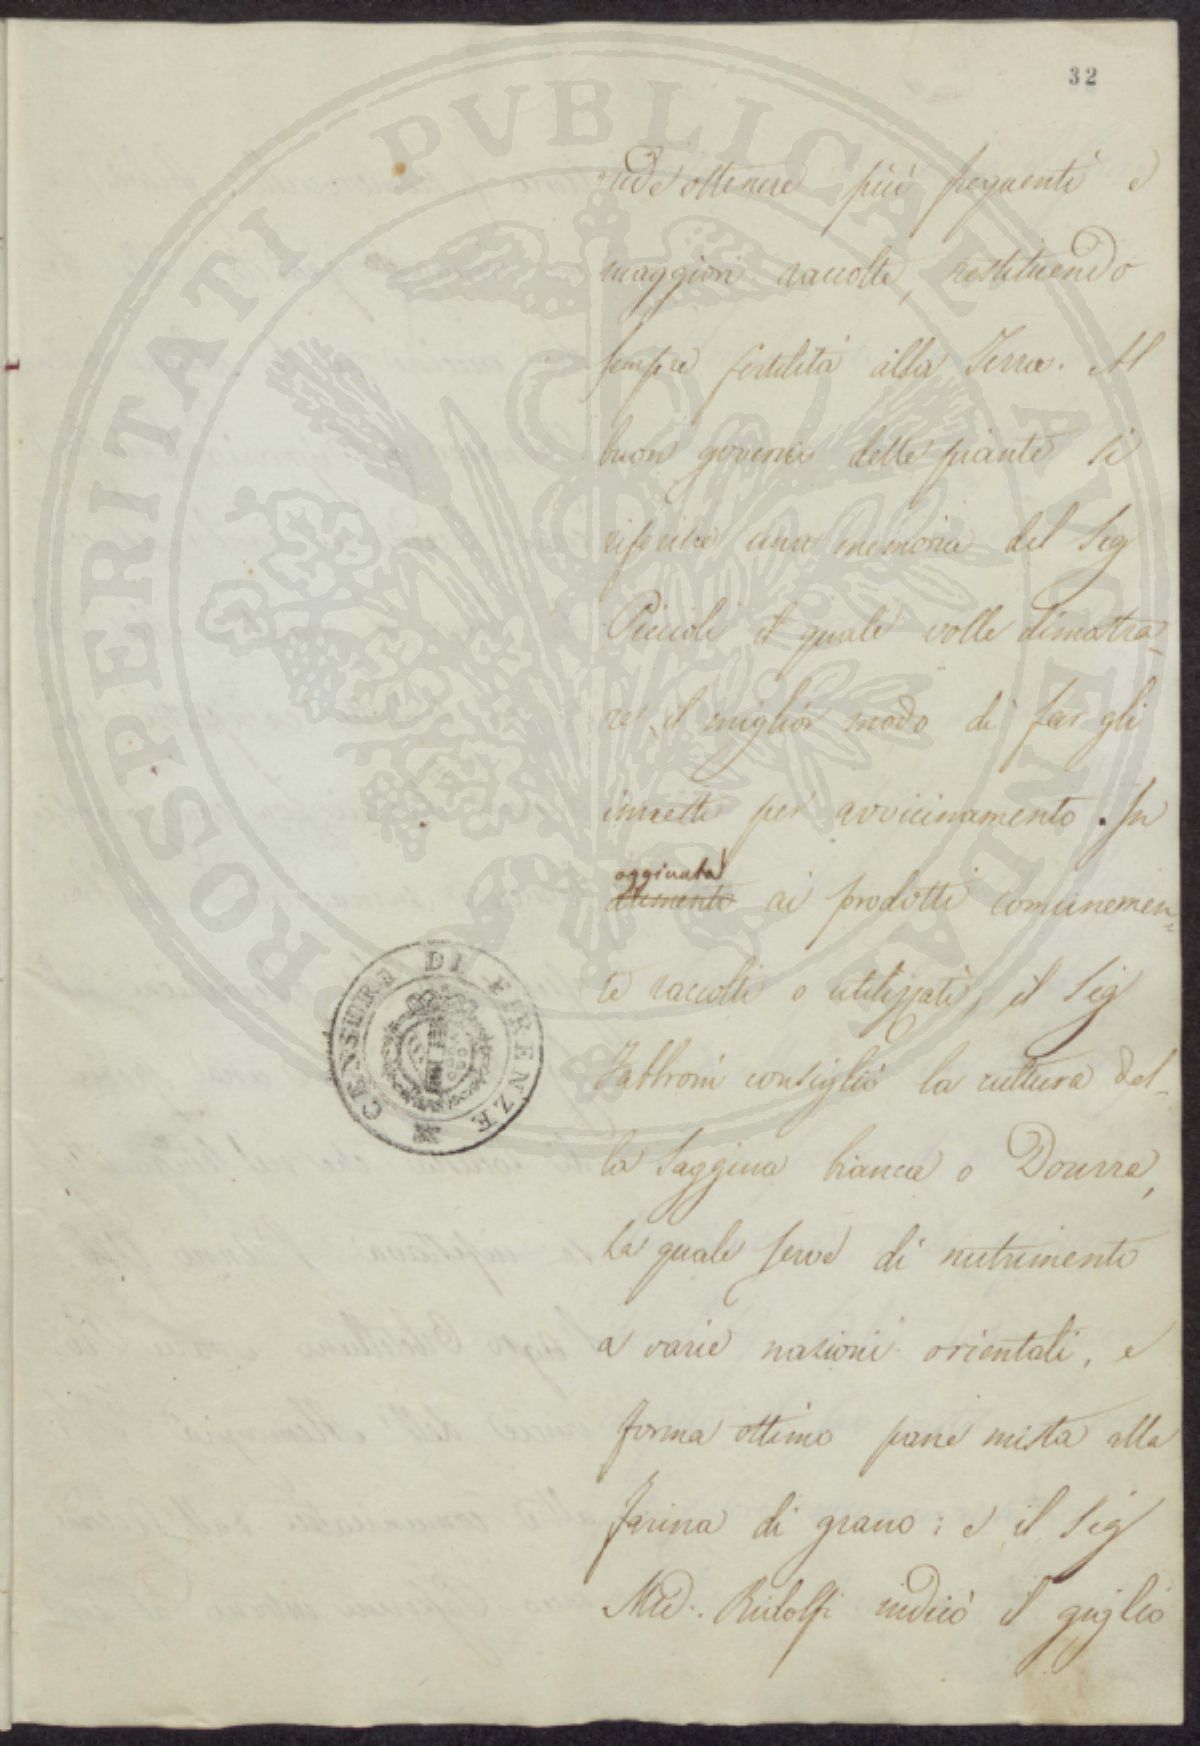 32
ottenere più frequenti e
maggiori raccolte, restituendo
sempre fertilità alla Terra. Al
buon governo delle piante si
riferisce una memoria del Sig
Piccioli il quale volle dimostra-
re il miglior modo di far gli
innesti per avvicinamento. In
aggiunta
ai prodotti comunemen=
te raccolti o utilizzati, il Sig
Fabbroni consigliò la cultura del-
la Saggina bianca o Dourra,
la quale serve di nutrimento
a varie nazioni orientali, e
forma ottimo pane mista alla
farina di grano: e il Sig
Ridolfi indicò il giglio
CENSURE DI FIRENZE
PROSPERITATI PVBLICAE AVGENDAE